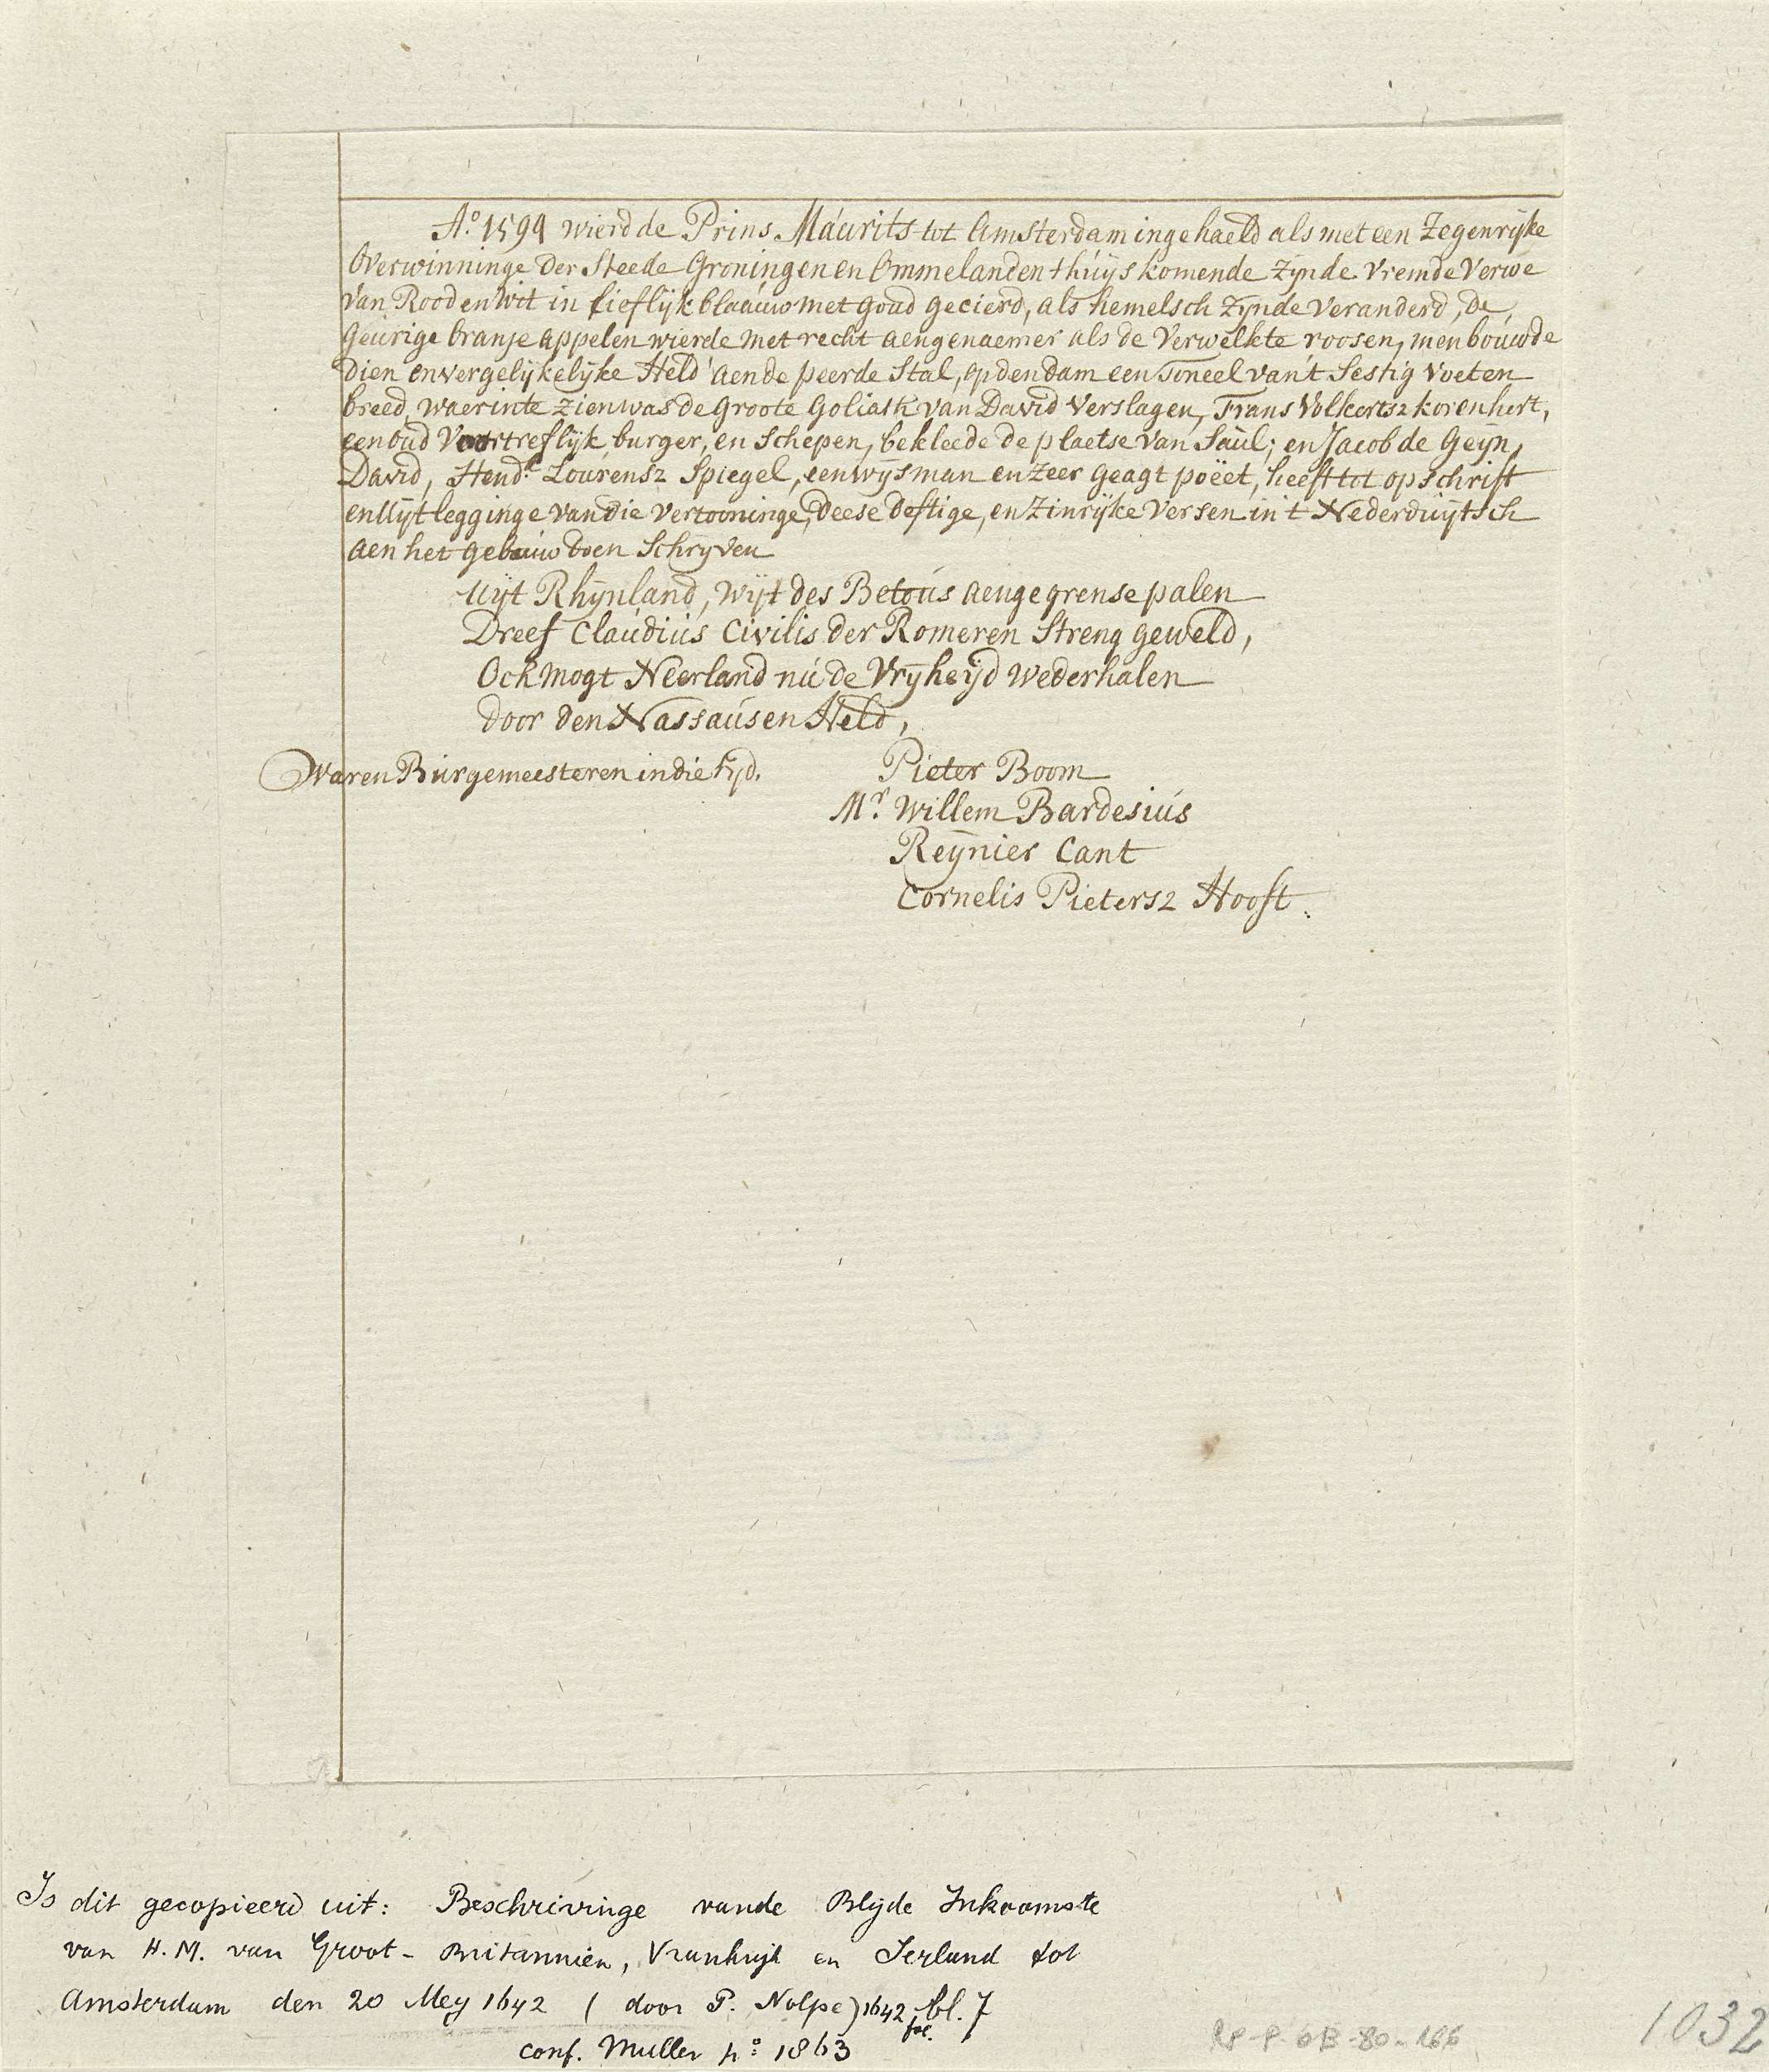 Aº. 1594 wierd de Prins Maurits tot Amsterdam ingehaeld als met een Zegenrijke
Overwinninge der Steede Groningen en Ommelanden thúÿs komende zynde Vremde Verwe
van Rood en Wit in lieflÿk blaaúw met goud gecierd, als hemelsch zÿnde veranderd, de
geúrige Oranje appelen wierde met recht aengenaemer als de verwelkte roosen, men boúwde
dien onvergelÿkelÿke Held aen de peerde Stal, op den dam een Toneel van 't Sestig voeten
breed, waer in te zien was de groote Goliath van David verslagen, Frans Volkertsz korenhert,
een oud Voortreflÿk burger, en Schepen, bekleede de plaetse van Saúl; en Jacob de Geÿn,
David, Hendk Loúrensz Spiegel, een wÿs man en zeer geagt poëet, heeft tot opschrift
en Uÿtlegginge van die vertooninge, deese deftige, en zinrÿke Versen in 't Nederduÿtsch
aen het gebouw doen Schryven
Uÿt Rhÿnland, Wÿt des Betoús aengegrense palen
Dreef Claúdiús Civilis der Romeren Streng geweld,
Ock mogt Neerland nú de Vrÿheÿd wederhalen
door den Nassaúsen Held,
Waren Búrgemeesteren in die tÿd. Pieter Boom
Mr. Willem Bardesiús
Reÿnier Cant
Cornelis Pietersz Hooft.
Is dit gecopieerd uit: Beschrivinge vande Blijde Inkoomste
van H. M. van Groot-Britannien, Vrankrijk en Ierland tot
Amsterdam den 20 Mey 1642 (door P. Nolpe) 1642 fol. bl. 7
conf. Muller nº: 1863
RP-P-OB-80-166
1032